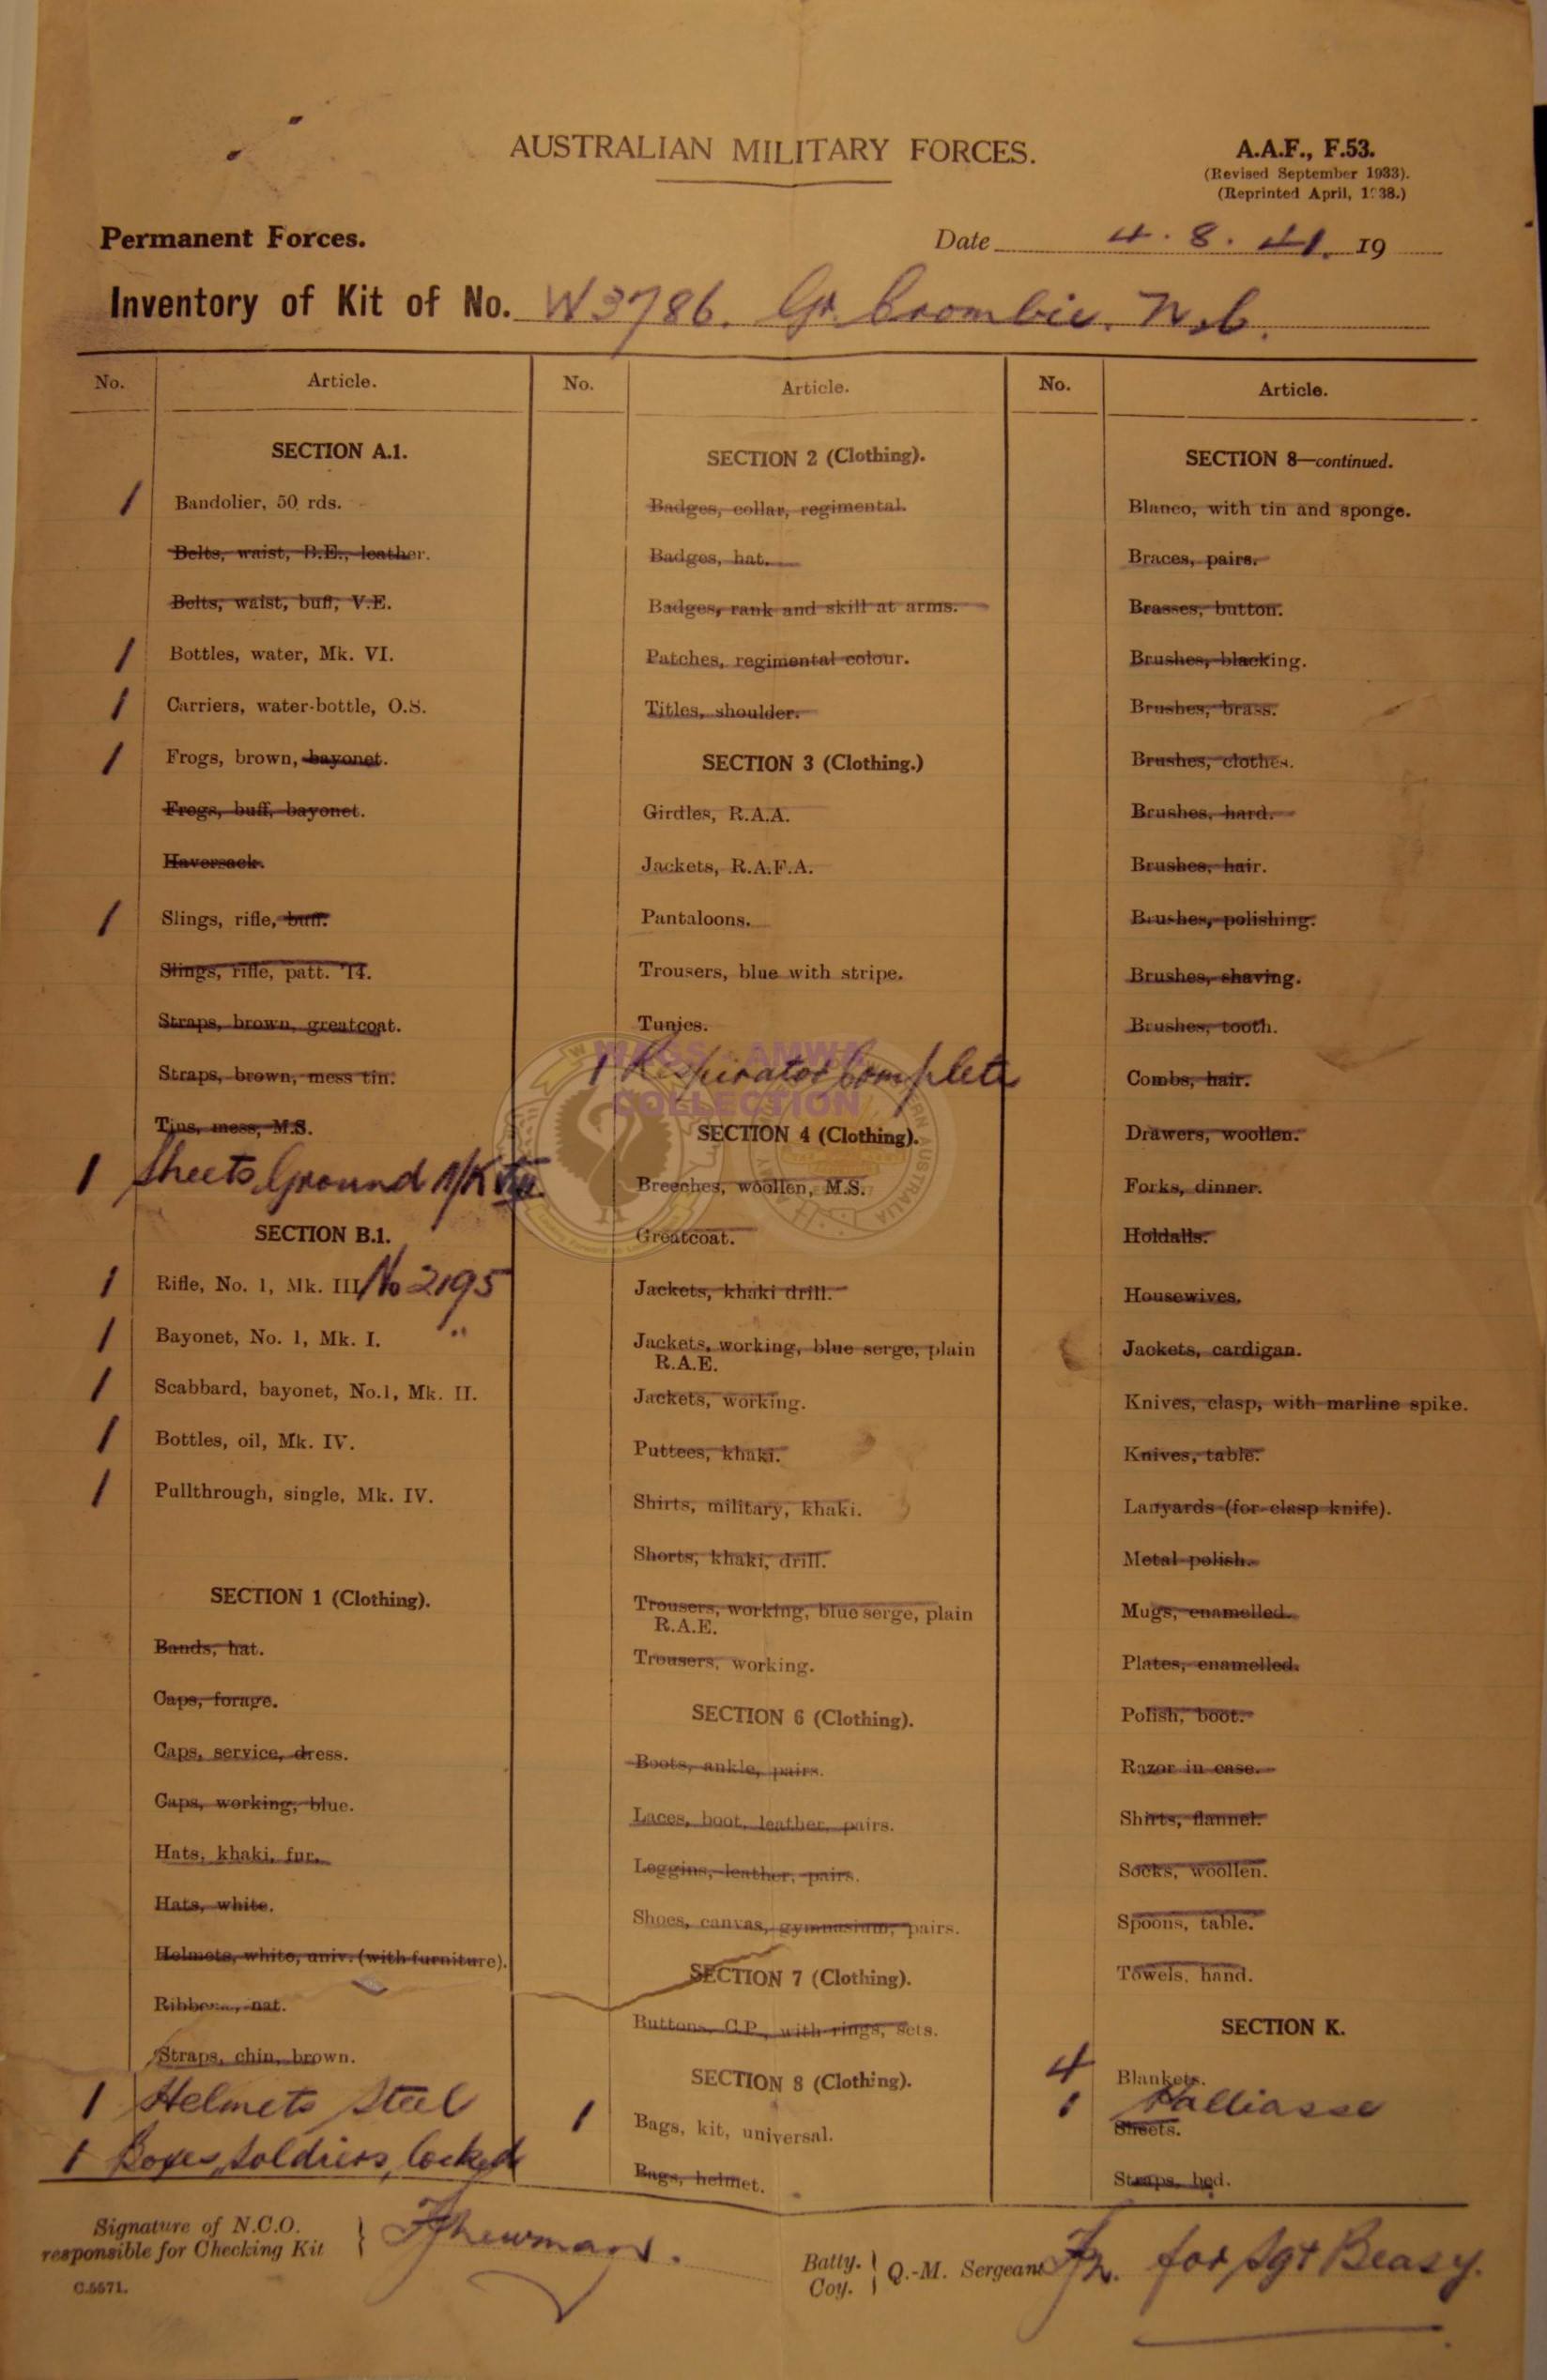 AUSTRALIAN MILITARY FORCES.
A.A.F., F.53.
(Revised September 1933).
(Reprinted April, 1938.)
Permanent Forces.
Date 4.8.41. 19
Inventory of Kit of No. W3786. Gr. Crombie. N.C.
No. Article.
SECTION A.1.
1 Bandolier, 50 rds.
Belts, waist, B.E., leather.
Belts, waist, buff, V.E.
1 Bottles, water, Mk. VI.
1 Carriers, water-bottle, O.S.
1 Frogs, brown, bayonet.
Frogs, buff, bayonet.
Haversack.
1 Slings, rifle, buff.
Slings, rifle, patt. '14.
Straps, brown, greatcoat.
Straps, brown, mess tin.
Tins, mess, M.S.
1 Sheets Ground
SECTION B.1.
1 Rifle, No. 1, Mk. III No 2195
1 Bayonet, No. 1, Mk. I. "
1 Scabbard, bayonet, No.1, Mk. II.
1 Bottles, oil, Mk. IV.
1 Pullthrough, single, Mk. IV.
SECTION 1 (Clothing).
Bands, hat.
Caps, forage.
Caps, service, dress.
Caps, working, blue.
Hats, khaki, fur.
Hats, white.
Helmets, white, univ. (with furniture).
Ribbons, hat.
Straps, chin, brown.
1 Helmets Steel
1 Boxes, Soldiers, locked
No. Article.
SECTION 2 (Clothing).
Badges, collar, regimental.
Badges, hat.
Badges, rank and skill at arms.
Patches, regimental colour.
Titles, shoulder.
SECTION 3 (Clothing.)
Girdles, R.A.A.
Jackets, R.A.F.A.
Pantaloons.
Trousers, blue with stripe.
Tunics.
1 Respirator Complete
SECTION 4 (Clothing).
Breeches, woollen, M.S.
Greatcoat.
Jackets, khaki drill.
Jackets, working, blue serge, plain
R.A.E.
Jackets, working.
Puttees, khaki.
Shirts, military, khaki.
Shorts, khaki, drill.
Trousers, working, blue serge, plain
R.A.E.
Trousers, working.
SECTION 6 (Clothing).
Boots, ankle, pairs.
Laces, boot, leather, pairs.
Leggins, leather, pairs.
Shoes, canvas, gymnasium, pairs.
SECTION 7 (Clothing).
Buttons, G.P., with rings, sets.
SECTION 8 (Clothing).
1 Bags, kit, universal.
Bags, helmet.
No. Article.
SECTION 8—continued.
Blanco, with tin and sponge.
Braces, pairs.
Brasses, button.
Brushes, blacking.
Brushes, brass.
Brushes, clothes.
Brushes, hard.
Brushes, hair.
Brushes, polishing.
Brushes, shaving.
Brushes, tooth.
Combs, hair.
Drawers, woollen.
Forks, dinner.
Holdalls.
Housewives.
Jackets, cardigan.
Knives, clasp, with marline spike.
Knives, table.
Lanyards (for clasp knife).
Metal polish.
Mugs, enamelled.
Plates, enamelled.
Polish, boot.
Razor in case.
Shirts, flannel.
Socks, woollen.
Spoons, table.
Towels, hand.
SECTION K.
4 Blankets.
1 Palliasse
Sheets.
Straps, bed.
WAGS - AMWA
COLLECTION
Signature of N.C.O.
responsible for Checking Kit
C.5571.
Batty.
Coy.
Q.-M. Sergeant for Sgt Beasy.